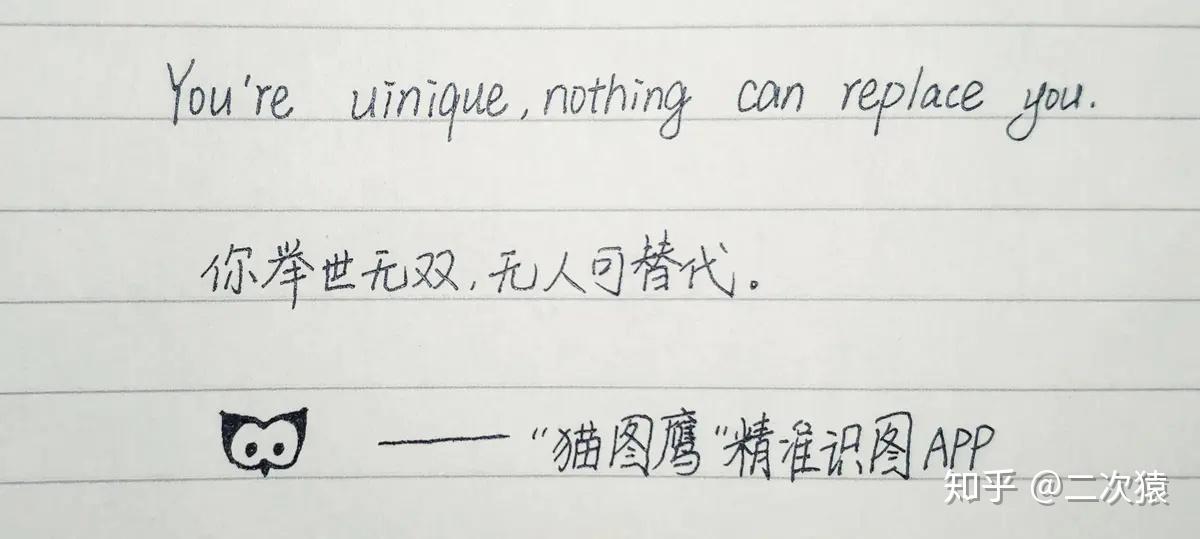 You're uinique, nothing can replace you.
你举世无双，无人可替代。
——“猫图鹰”精准识图APP
知乎 @二次猿